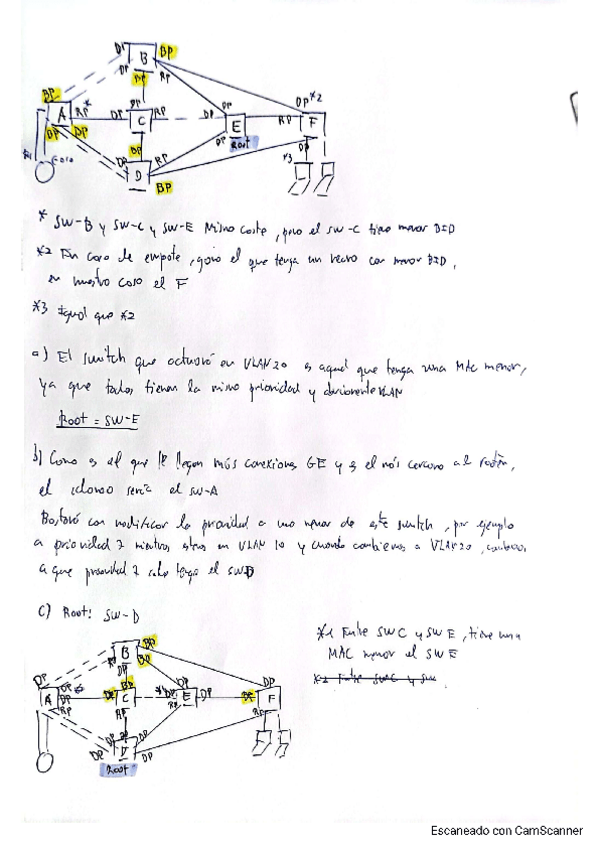 DP B BP
DP DP RP
BP BP DP *2
A RP* DP DP C RP DP E DP RP F
DP DP BP DP Root DP
*1 Eo10 DP D RP *3
BP
* SW-B y SW-C y SW-E Mismo coste, pero el SW-C tiene menor BID
*2 En caso de empate, gana el que tenga un vecino con menor BID,
en nuestro caso el F
*3 Igual que *2
a) El switch que actuará en VLAN 20 es aquel que tenga una MAC menor,
ya que todos tienen la misma prioridad y VLAN
Root = SW-E
b) Como es al que le llegan más conexiones GE y es el más cercano al
el idoneo seria el SW-A
Bastará con modificar la prioridad a uno menor de este switch, por ejemplo
a prioridad 7 mientras en VLAN 10 y cuando cambiemos a VLAN 20,
a que prioridad 7 solo tenga el SWD
c) Root: SW-D
*1 Entre SWC y SWE, tiene una
MAC menor el SWE
*2 Entre SWC y SW
B BP
RP DP BP
DP BP DP DP
A DP DP C *1 DP E DP BP F
RP RP RP RP
DP D DP
Root DP
Escaneado con CamScanner